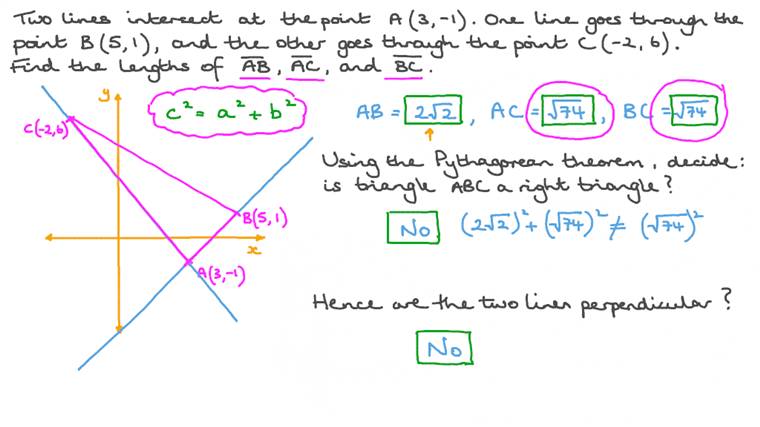 Two lines intersect at the point A(3,-1). One line goes through the
point B(5,1), and the other goes through the point C(-2,6).
Find the lengths of AB, AC, and BC.
y
c² = a² + b²
AB = 2√2, AC = √74, BC = √74
C(-2,6)
Using the Pythagorean theorem, decide:
is triangle ABC a right triangle?
B(5,1)
No (2√2)² + (√74)² ≠ (√74)²
x
A(3,-1)
Hence are the two lines perpendicular?
No